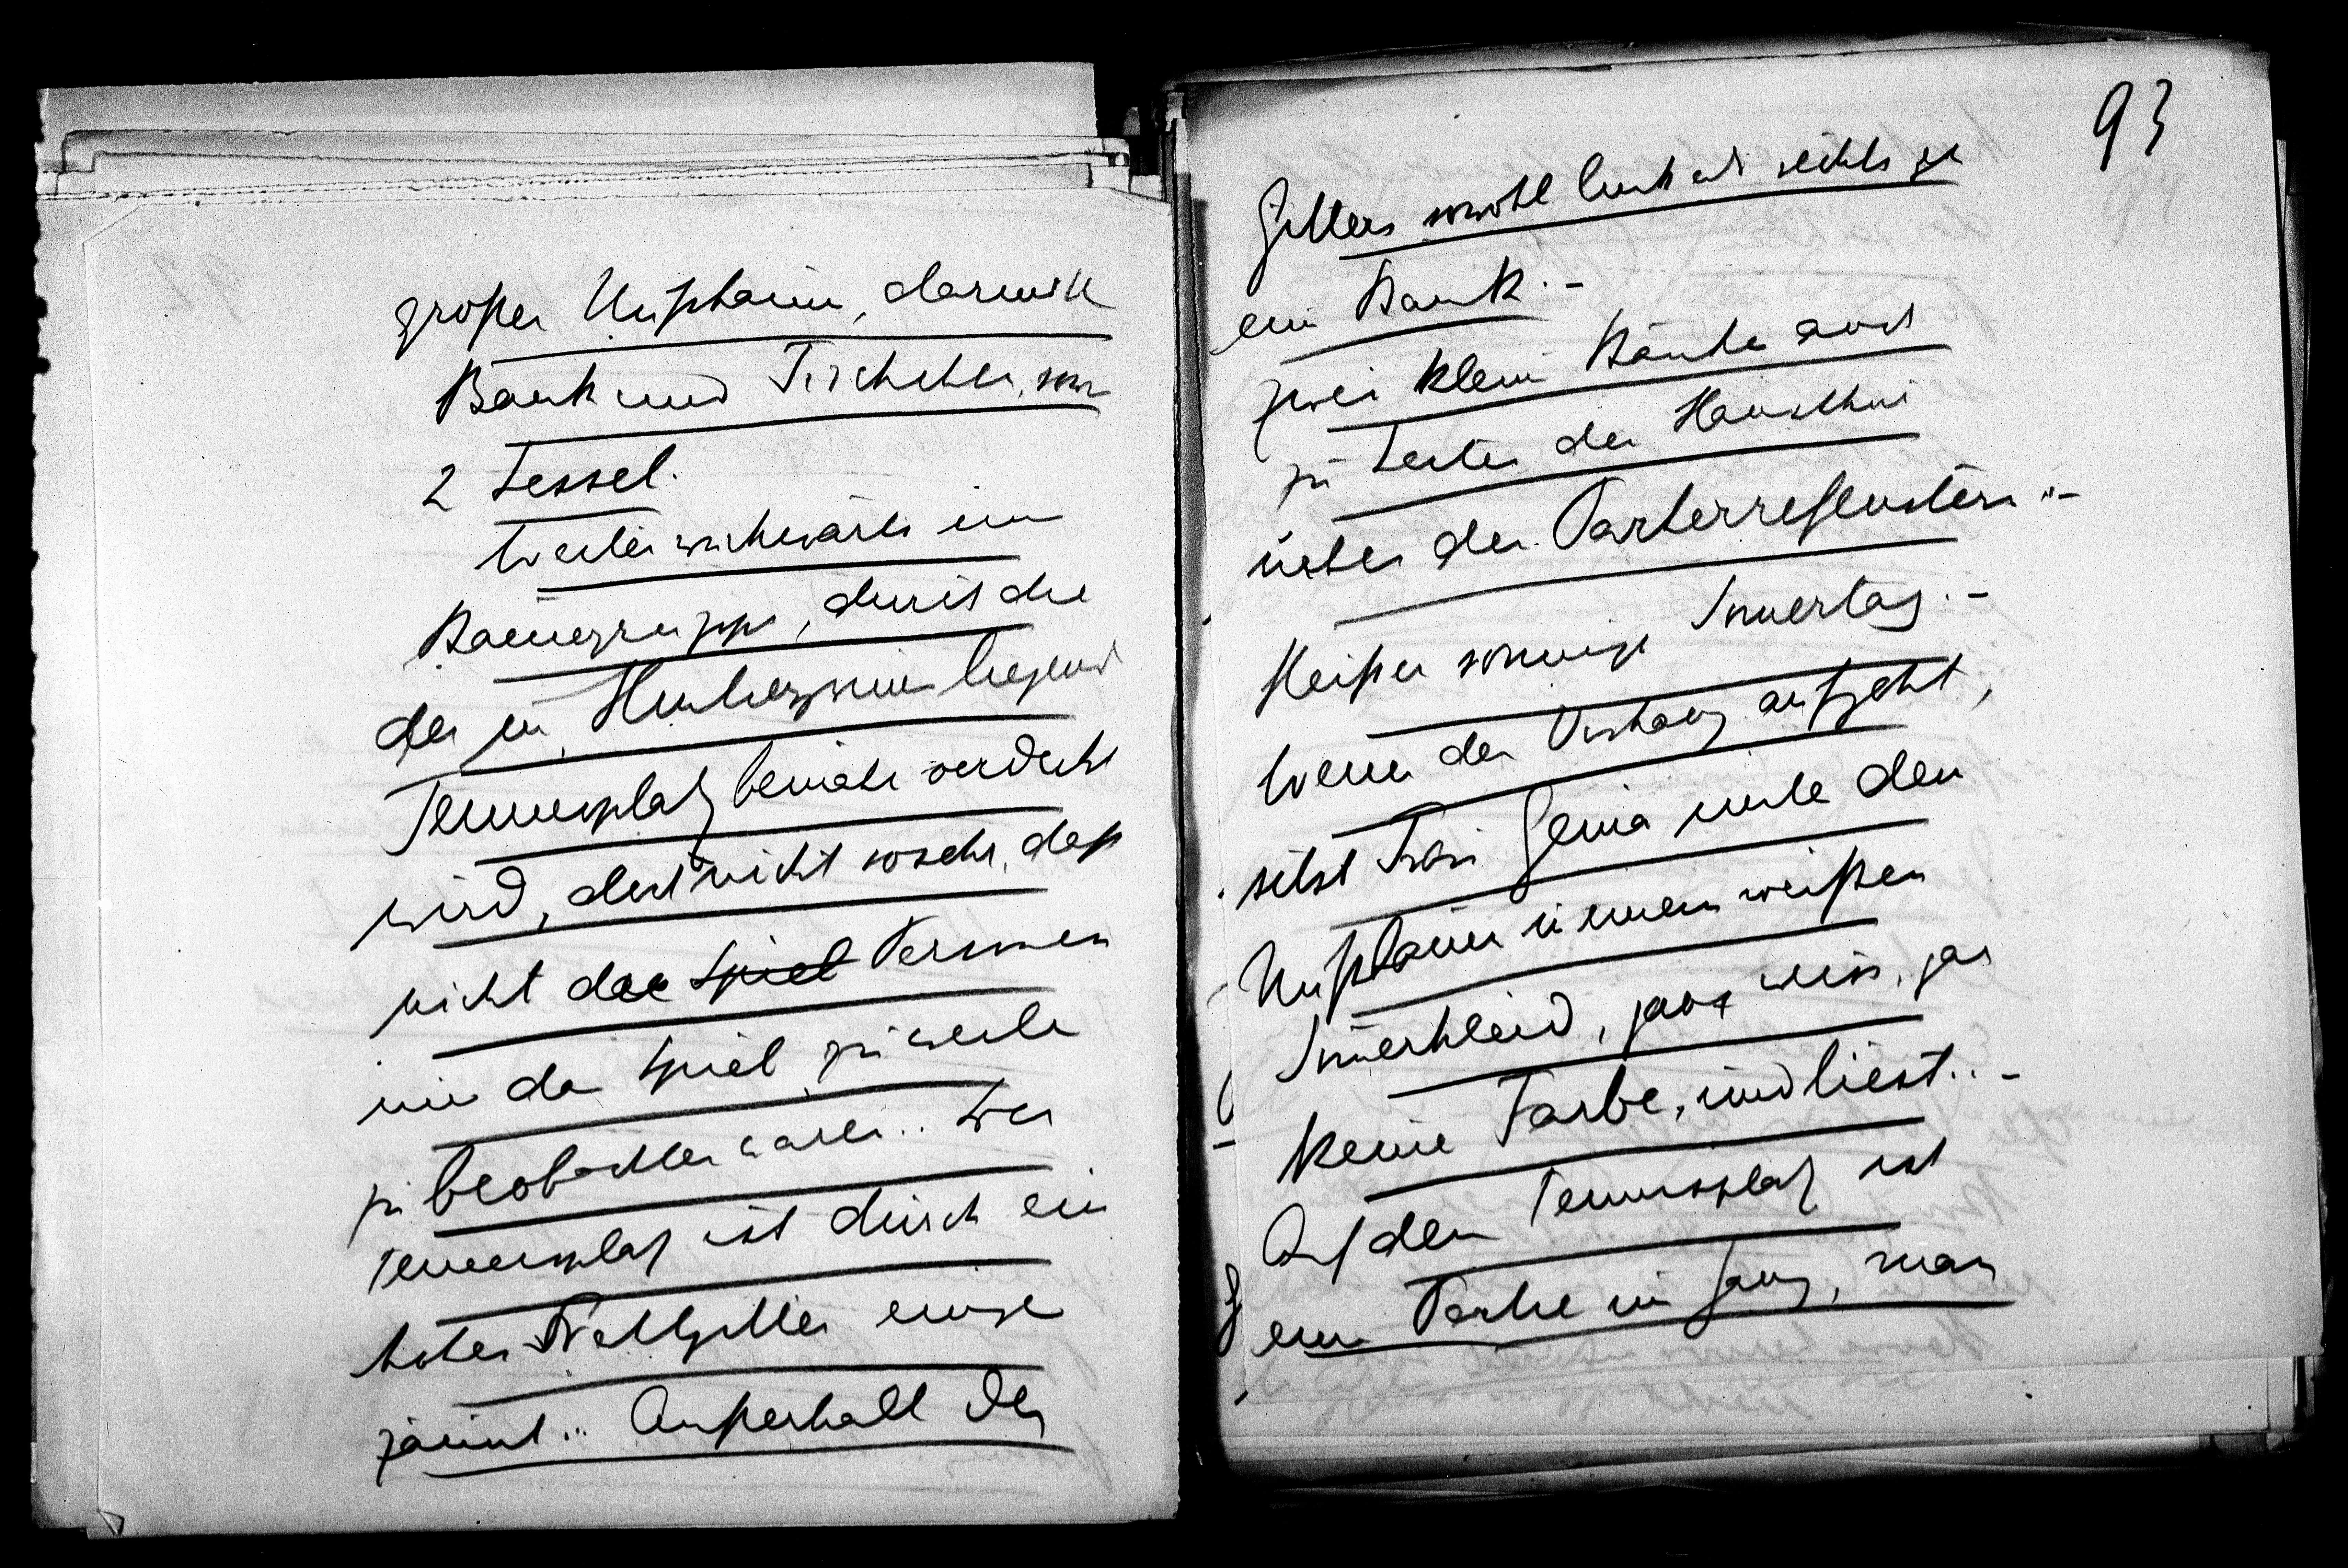 großer Nußbaum, darunter
Bank und Tischchen, 
2 Sessel.
Weiter rückwärts eine
Baumgruppe, durch die
der im Hintergrund liegende
Tennisplatz beinahe verdeckt
wird, doch nicht so sehr, daß
nicht das Spiel Personen
und das Spiel zuweilen
zu beobachten wären.. Der
Tennisplatz ist durch ein
hohes Drahtgitter einge
zäunt... Außerhalb des
93
94
Gitters sowohl links als rechts je
eine Bank.–
Zwei kleine Bänke auch
zu Seiten der Hausthür
unter den Parterrefenstern.–
Heißer sonniger Sommertag.–
Wenn der Vorhang aufgeht,
sitzt Frau Genia unter dem
Nußbaum in einem weißen
Sommerkleid, ganz weiss, gar
keine Farbe, und liest..–
Auf dem Tennisplatz ist
eine Partie im Gang, man